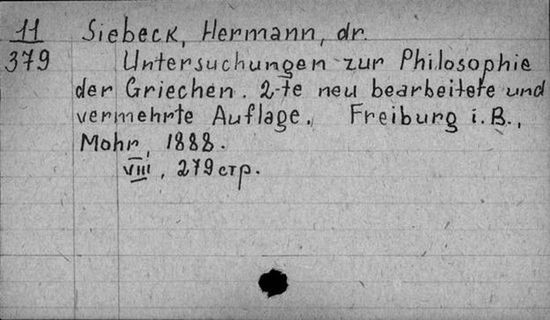 11 Siebeck, Hermann, dr.
379 Untersuchungen zur Philosophie
der Griechen. 2-te neu bearbeitete und
vermehrte Auflage. Freiburg i. B.,
Mohr, 1888.
VIII, 279 стр.